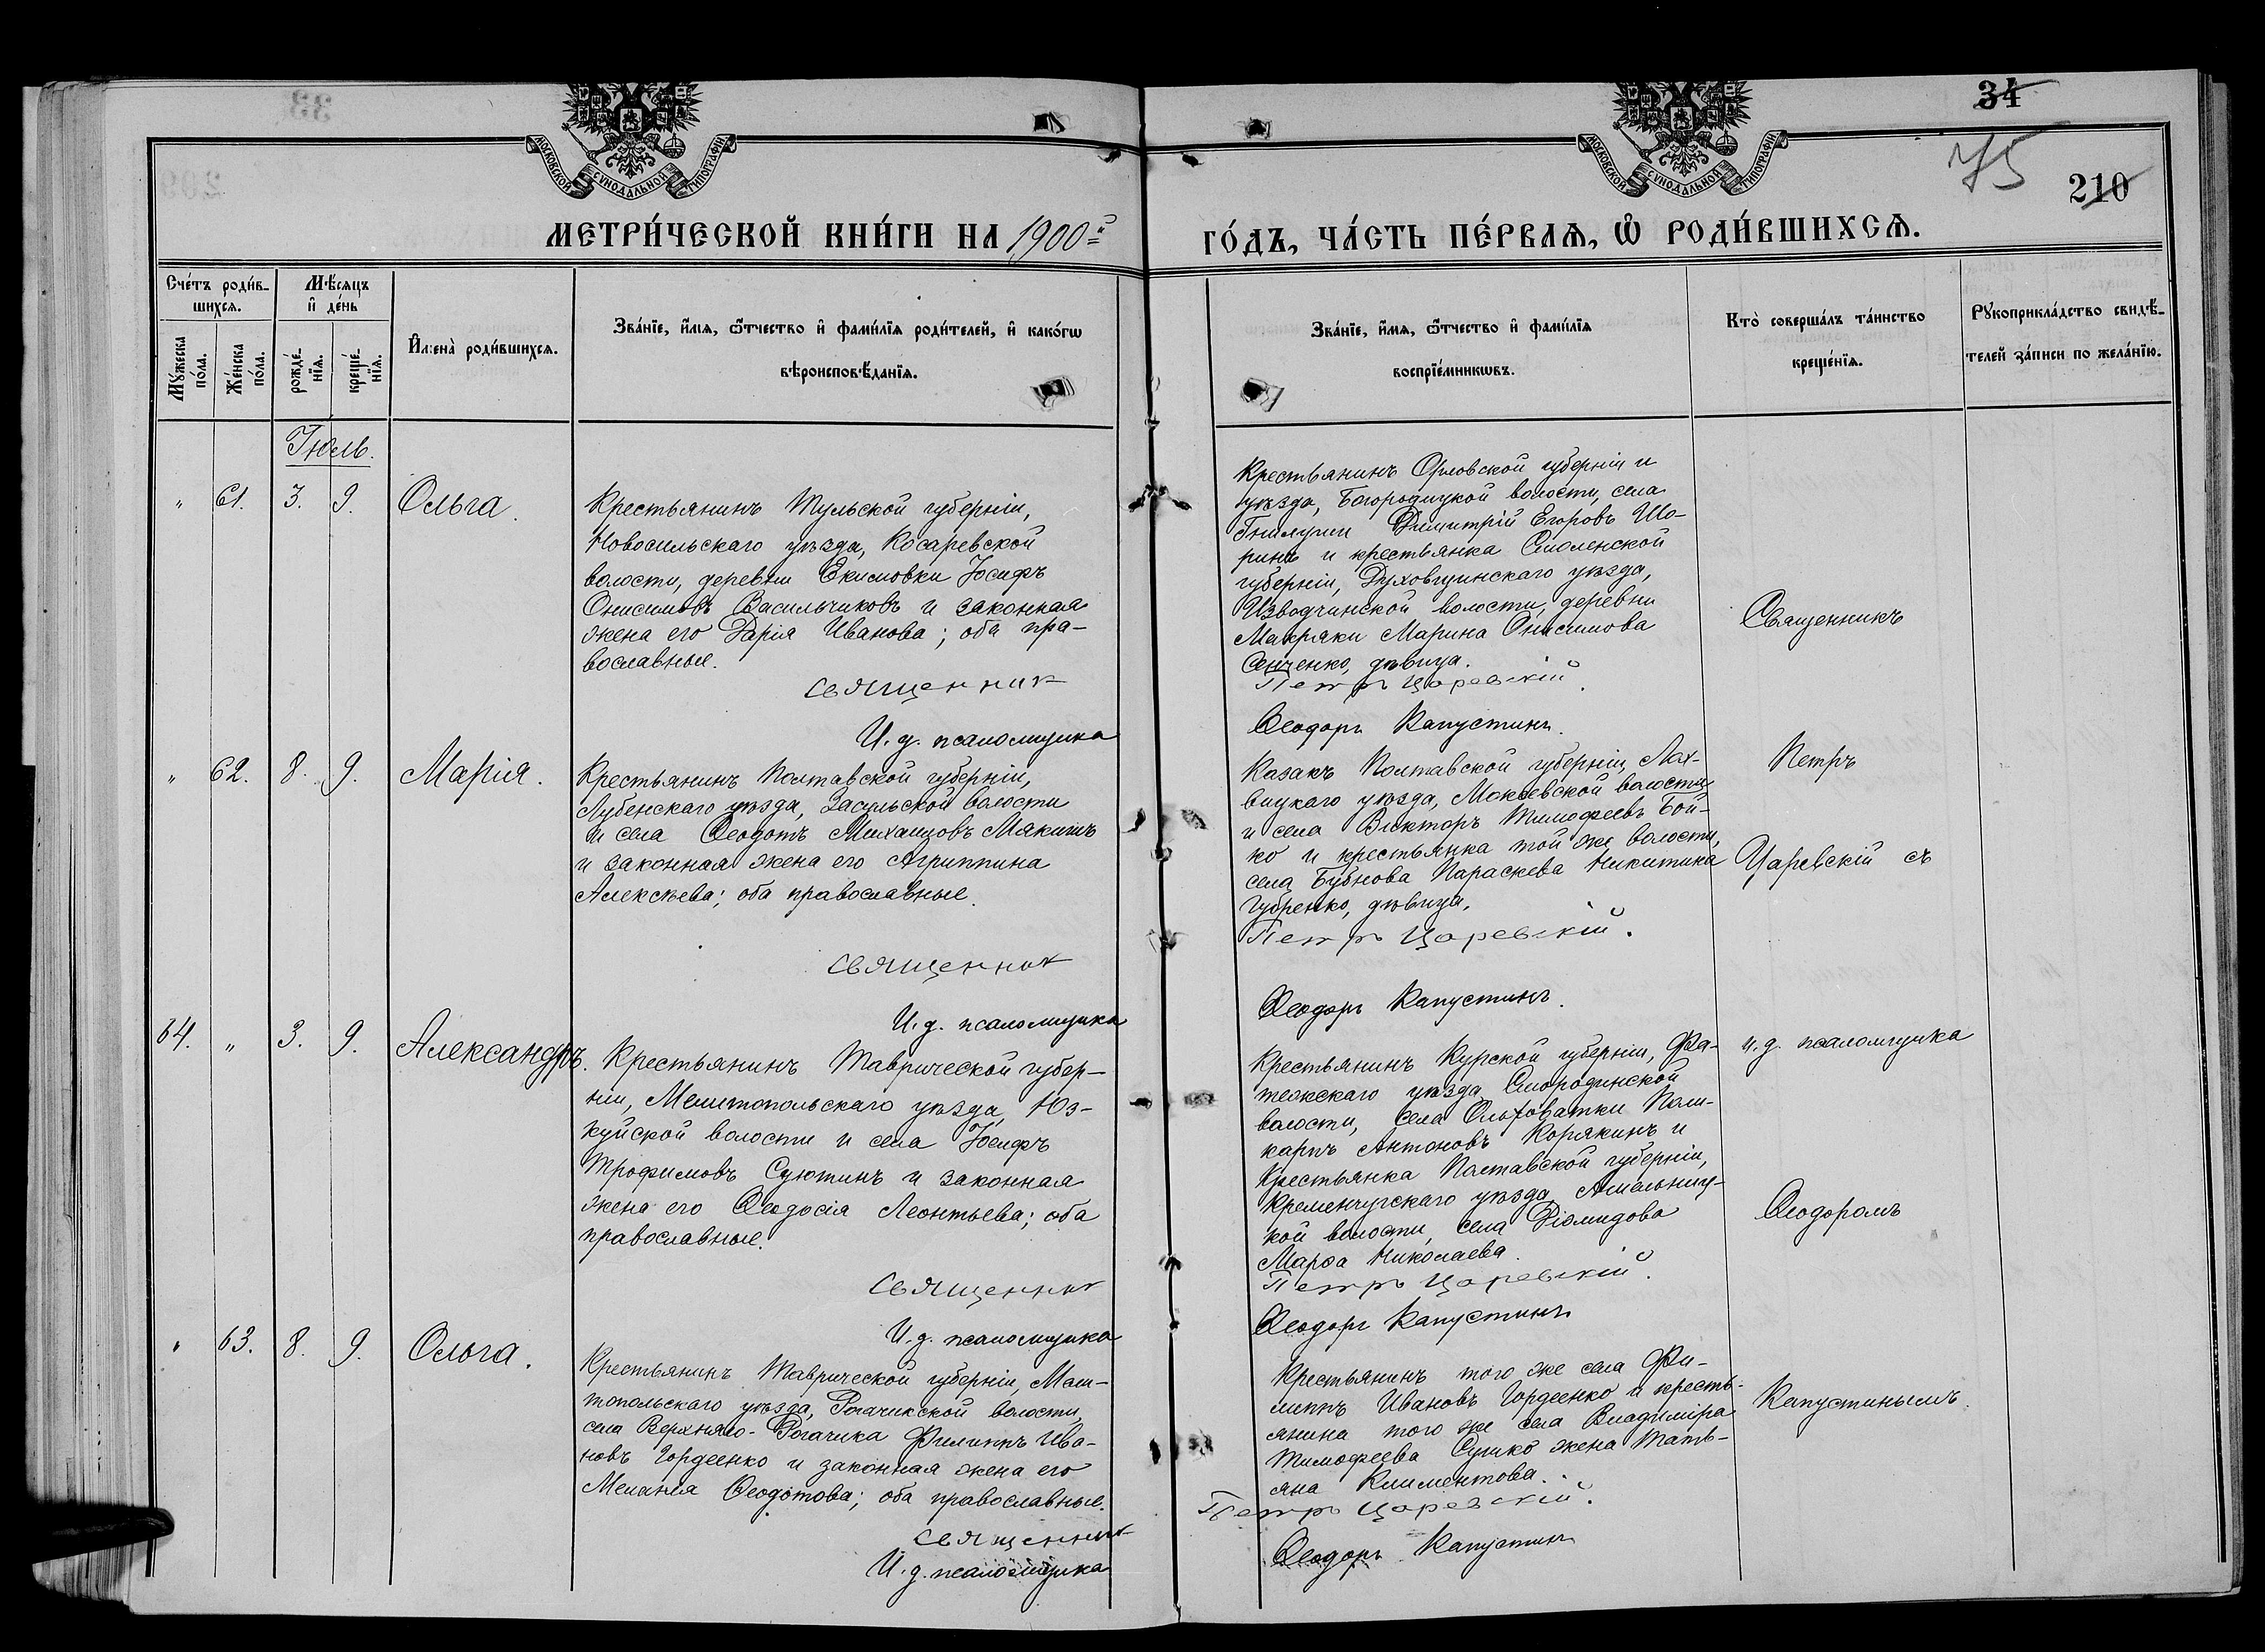 34
75
210
МОСКОВСКОЙ СѴНОДАЛЬНОЙ ТИПОГРАФІИ
МОСКОВСКОЙ СѴНОДАЛЬНОЙ ТИПОГРАФІИ
МЕТРИ́ЧЕСКОЙ КНИ́ГИ НА 1900=й
ГО́ДЪ, ЧА́СТЬ ПЕ́РВАѦ, Ѽ РОДИ́ВШИХСѦ.
Сче́тъ роди́в-
шихсѧ.
Мꙋ́жеска по́ла.
Же́нска по́ла.
Мѣ́сѧцъ
и҆ де́нь
рожде́-
нїѧ.
креще́-
нїѧ.
И҆мена̀ роди́вшихсѧ.
Зва́нїе, и҆́мѧ, ѻ҆́тчество и҆ фами́лїѧ роди́телей, и҆ како́гѡ
вѣроисповѣ́данїѧ.
Зва́нїе, и҆́мѧ, ѻ҆́тчество и҆ фами́лїѧ
воспрїе́мникѡвъ.
Кто̀ соверша́лъ та́инство
креще́нїѧ.
Рꙋкоприкла́дство свидѣ́-
телей за́писи по жела́нїю.
Іюль.
" 61. 3. 9. Ольга.
Крестьянинъ Тульской губерніи,
Новосильскаго уѣзда, Косаревской
волости, деревни Екимовки Іосифъ
Онисимовъ Васильчиковъ и законная
жена его Дарія Иванова; оба пра-
вославные.
священник
И. д. псаломщика
Крестьянинъ Орловской губерніи и
уѣзда, Богородицкой волости, села
Гнилуши Димитрій Егоровъ Шо-
ринъ и крестьянка Смоленской
губерніи, Духовщинскаго уѣзда,
Изводчинской волости, деревни
Макряки Марина Онисимова
Сенченко, дѣвица.
Петръ Царевскій.
Ѳеодоръ Капустинъ.
" 62. 8. 9. Марія.
Крестьянинъ Полтавской губерніи,
Лубенскаго уѣзда, Засульской волости
и села Ѳеодотъ Михаиловъ Мякишъ
и законная жена его Агриппина
Алексѣева; оба православные.
священник
И. д. псаломщика
Казакъ Полтавской губерніи, Лох-
вицкаго уѣзда, Мокѣевской волости
и села Викторъ Тимофеевъ Бой-
ко и крестьянка той же волости,
села Бубнова Параскева Никитина
Губренко, дѣвица.
Петръ Царевскій.
Ѳеодоръ Капустинъ.
64. " 3. 9. Александръ.
Крестьянинъ Таврической губер-
ніи, Мелитопольскаго уѣзда, Юз-
куйской волости и села Іосифъ
Трофимовъ Сяютинъ и законная
жена его Ѳеодосія Леонтьева; оба
православные.
священник
И. д. псаломщика
Крестьянинъ Курской губерніи, Фа-
тежскаго уѣзда, Смородинской
волости, села Ольховатки Поли-
карпъ Антоновъ Корякинъ и
крестьянка Полтавской губерніи,
Кременчугскаго уѣзда, Амельниц-
кой волости, села Діомидова
Марѳа Николаева.
Петръ Царевскій.
Ѳеодоръ Капустинъ
" 63. 8. 9. Ольга.
Крестьянинъ Таврической губерніи, Мели-
топольскаго уѣзда, Рогачикской волости,
села Верхняго-Рогачика Филиппъ Ива-
новъ Гордеенко и законная жена его
Меланія Ѳеодотова; оба православные.
священник
И. д. псаломщика
Крестьянинъ того же села Фи-
липпъ Ивановъ Гордеенко и кресть-
янина того же села Владиміра
Тимофеева Сушко жена Тать-
яна Климентова.
Петръ Царевскій.
Ѳеодоръ Капустинъ
Священникъ
Петръ
Царевскій съ
и. д. псаломщика
Ѳеодоромъ
Капустинымъ.